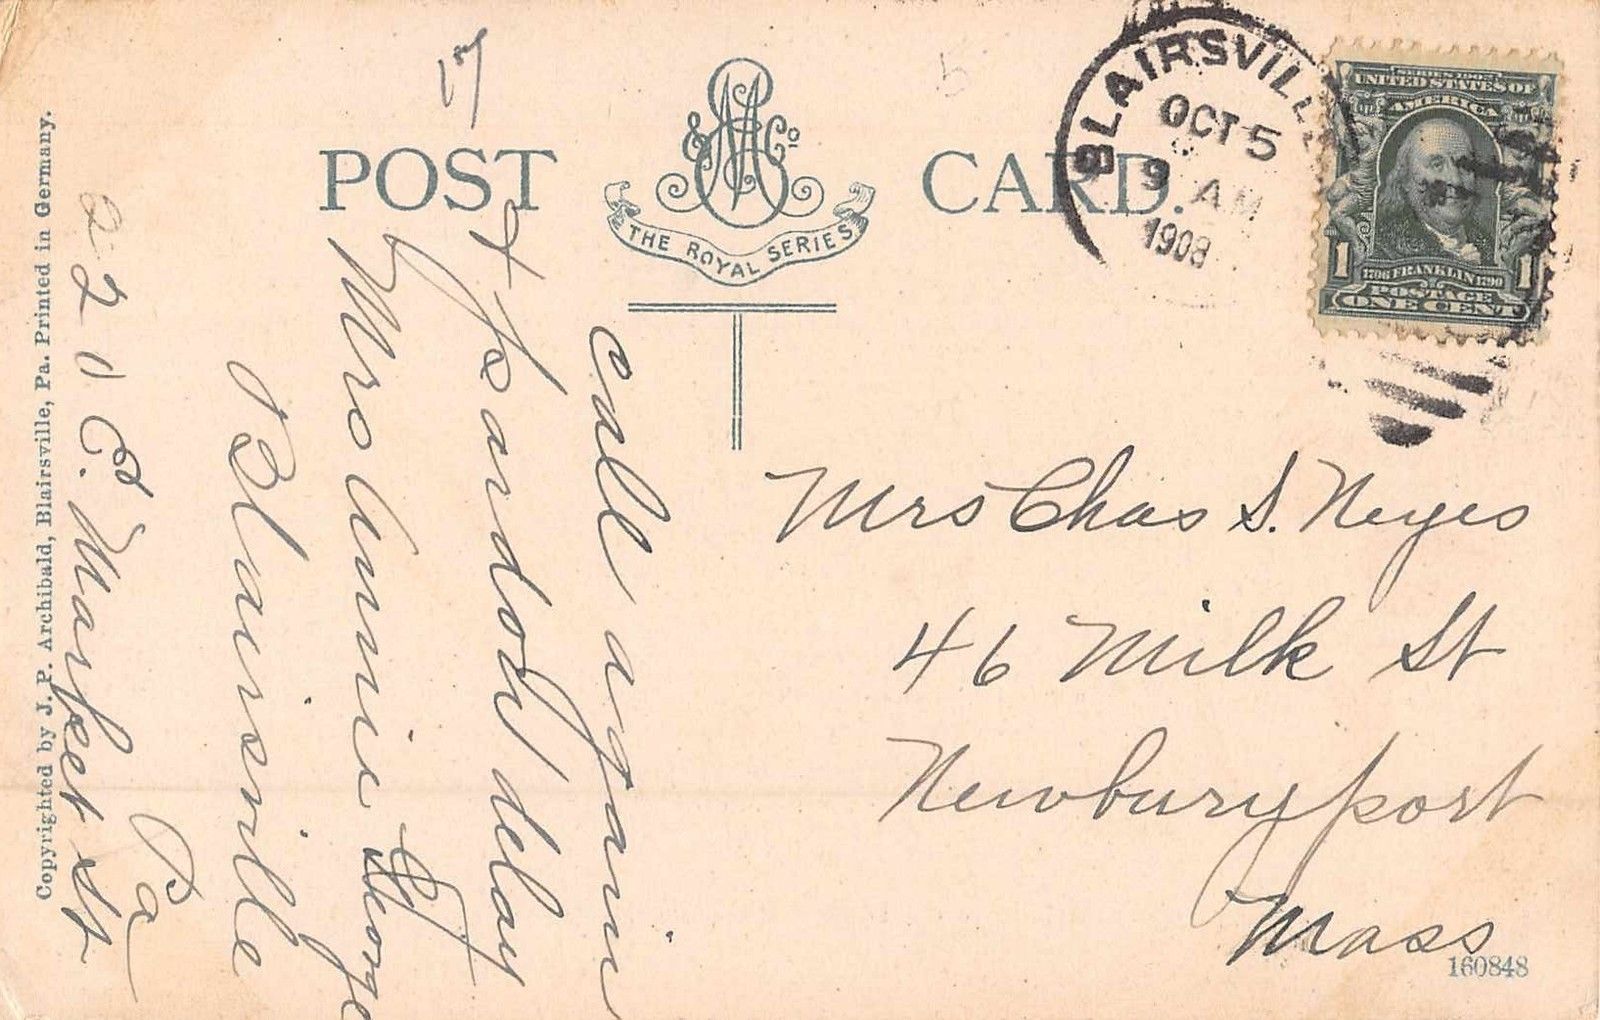 17
5
POST CARD.
A M & Co
THE ROYAL SERIES
BLAIRSVILLE
OCT 5
9 AM
1908
SERIES 1902
UNITED STATES OF
AMERICA
1 1
1706 FRANKLIN 1790
POSTAGE
ONE CENT
call again
+ pardon delay
Mrs Annie George
Blairsville
Pa
220 E. Market St.
Mrs Chas S. Neyes
46 Milk St
Newburyport
Mass
160848
Copyrighted by J. P. Archibald, Blairsville, Pa. Printed in Germany.